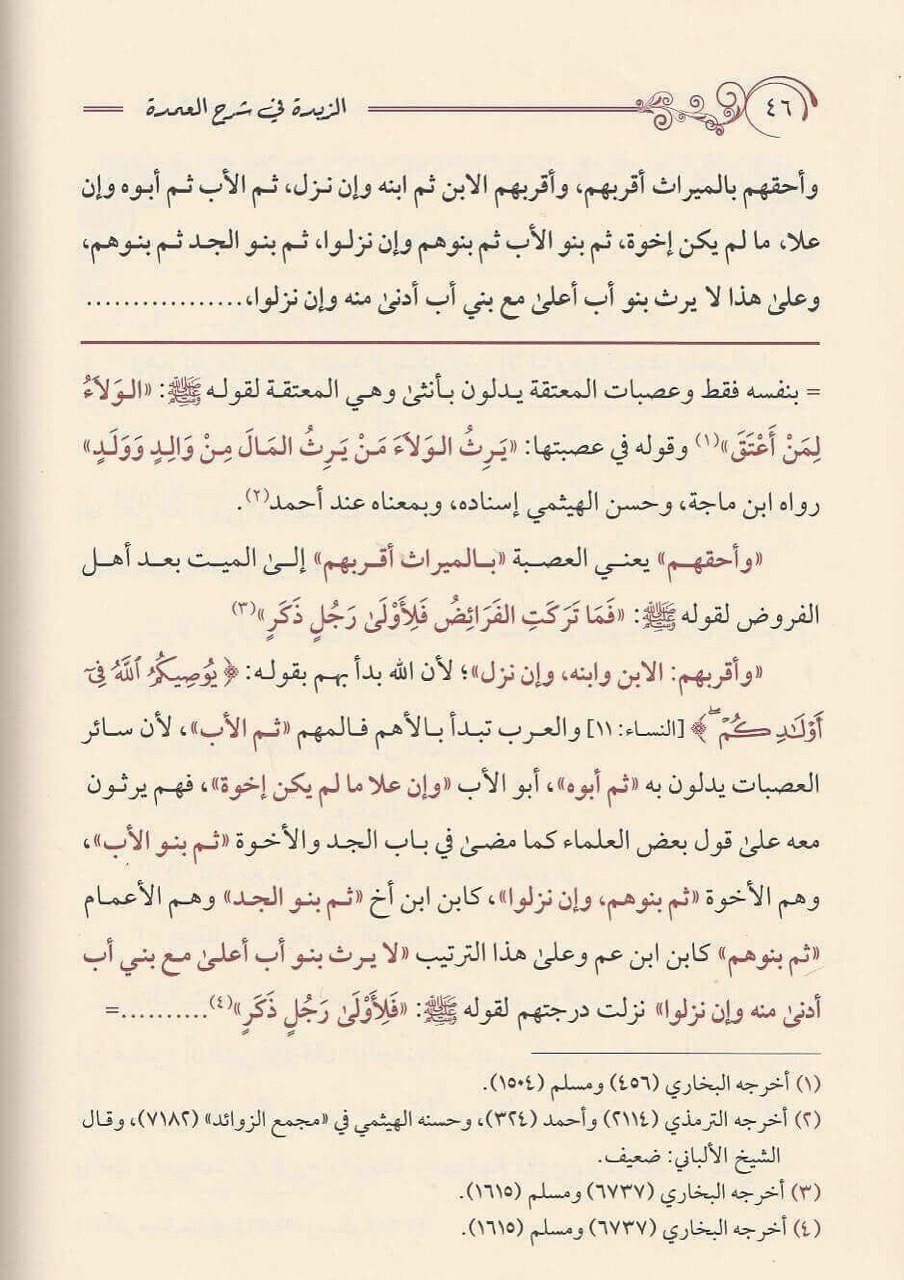 ٤٦
الزبدة في شرح العمدة
وأحقهم بالميراث أقربهم، وأقربهم الابن ثم ابنه وإن نزل، ثم الأب ثم أبوه وإن
علا، ما لم يكن إخوة، ثم بنو الأب ثم بنوهم وإن نزلوا، ثم بنو الجد ثم بنوهم،
وعلىٰ هذا لا يرث بنو أب أعلىٰ مع بني أب أدنىٰ منه وإن نزلوا،.................
= بنفسه فقط وعصبات المعتقة يدلون بأنثىٰ وهي المعتقة لقوله ﷺ: «الوَلَاءُ
لِمَنْ أَعْتَقَ»(١) وقوله في عصبتها: «يَرِثُ الوَلَاءَ مَنْ يَرِثُ المَالَ مِنْ وَالِدٍ وَوَلَدٍ»
رواه ابن ماجة، وحسن الهيثمي إسناده، وبمعناه عند أحمد(٢).
«وأحقهم» يعني العصبة «بالميراث أقربهم» إلىٰ الميت بعد أهل
الفروض لقوله ﷺ: «فَمَا تَرَكَتِ الفَرَائِضُ فَلِأَوْلَىٰ رَجُلٍ ذَكَرٍ»(٣)
«وأقربهم: الابن وابنه، وإن نزل»؛ لأن الله بدأ بهم بقوله: ﴿يُوصِيكُمُ ٱللَّهُ فِىٓ
أَوْلَٰدِكُمْۖ﴾ [النساء: ١١] والعرب تبدأ بالأهم فالمهم «ثم الأب»، لأن سائر
العصبات يدلون به «ثم أبوه»، أبو الأب «وإن علا ما لم يكن إخوة»، فهم يرثون
معه علىٰ قول بعض العلماء كما مضىٰ في باب الجد والأخوة «ثم بنو الأب»،
وهم الأخوة «ثم بنوهم، وإن نزلوا»، كابن ابن أخ «ثم بنو الجد» وهم الأعمام
«ثم بنوهم» كابن ابن عم وعلىٰ هذا الترتيب «لا يرث بنو أب أعلىٰ مع بني أب
أدنىٰ منه وإن نزلوا» نزلت درجتهم لقوله ﷺ: «فَلِأَوْلَىٰ رَجُلٍ ذَكَرٍ»(٤)..........=
(١) أخرجه البخاري (٤٥٦) ومسلم (١٥٠٤).
(٢) أخرجه الترمذي (٢١١٤) وأحمد (٣٢٤)، وحسنه الهيثمي في «مجمع الزوائد» (٧١٨٢)، وقال
الشيخ الألباني: ضعيف.
(٣) أخرجه البخاري (٦٧٣٧) ومسلم (١٦١٥).
(٤) أخرجه البخاري (٦٧٣٧) ومسلم (١٦١٥).